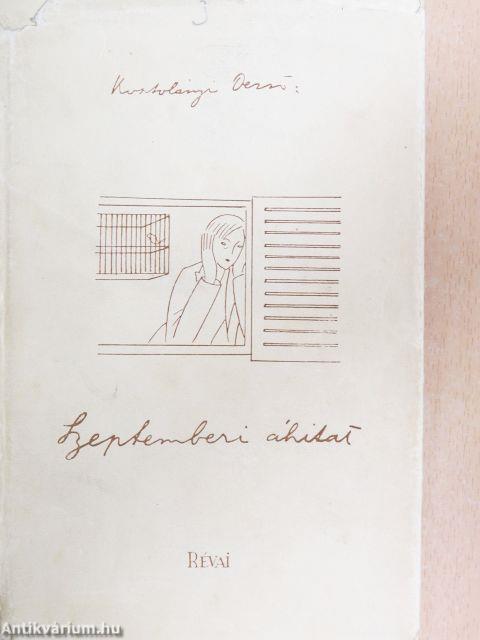 3
Kosztolányi Dezső:
Szeptemberi áhitat
RÉVAI
Antikvárium.hu